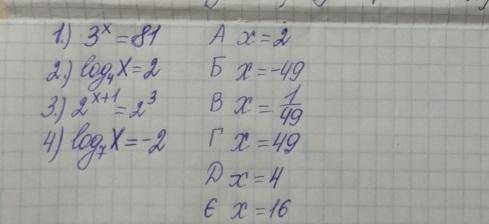 1.) 3^x = 81 А x = 2
2.) log₄ x = 2 Б x = -49
3.) 2^(x+1) = 2^3 В x = 1/49
4) log₇ x = -2 Г x = 49
Д x = 4
Є x = 16